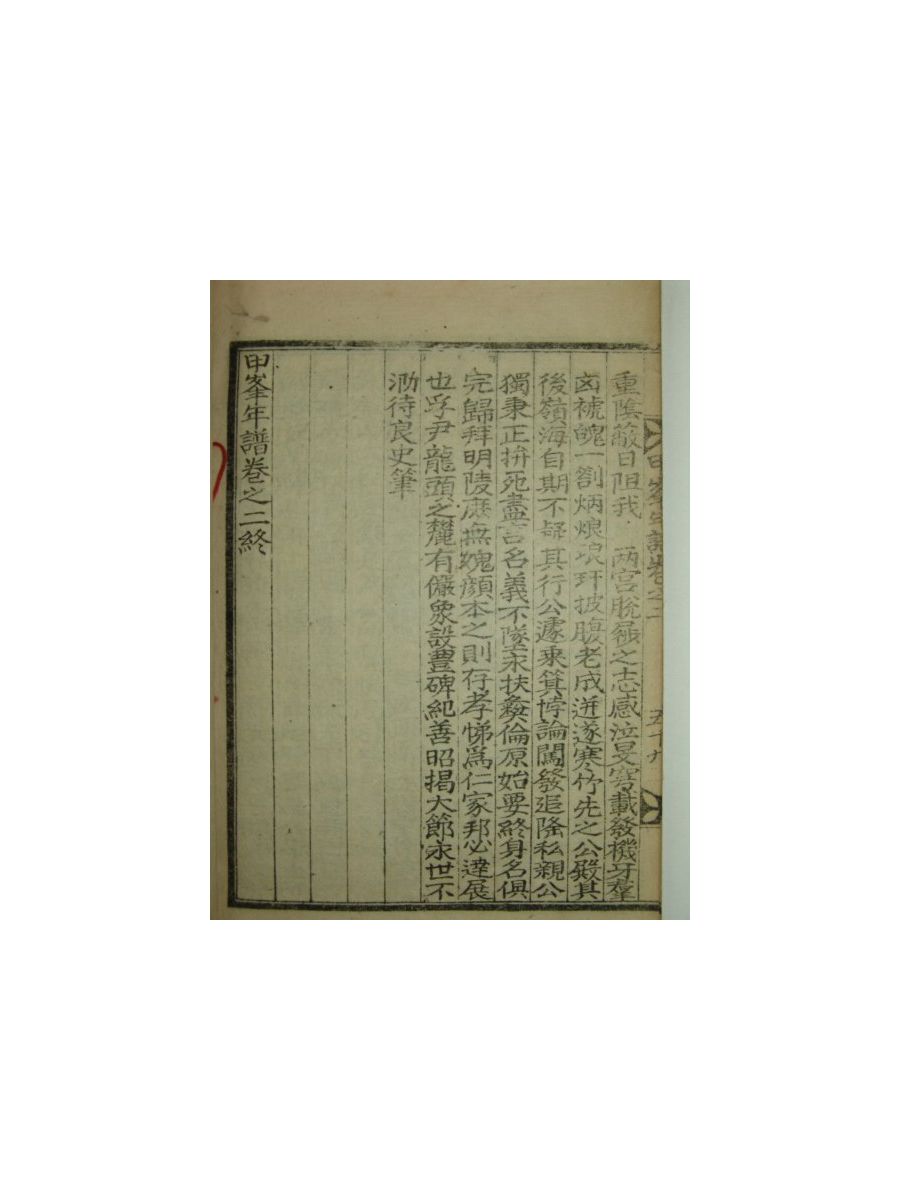 甲峯年譜卷之二 五十九
重陰蔽日阻我 兩宫脫屣之志感泣旻穹載發機牙羣
凶褫魄一劄炳烺琅玕披腹老成迸逐寒竹先之公殿其
後嶺海自期不疑其行公遽乘箕悖論闖發追隆私親公
獨秉正拚死盡言名義不墜永扶彜倫原始要終身名俱
完歸拜明陵庶無愧顔本之則存孝悌爲仁家邦必達展
也孚尹龍頭之麓有儼象設豊碑紀善昭揭大節永世不
泐待良史筆
甲峯年譜卷之二終